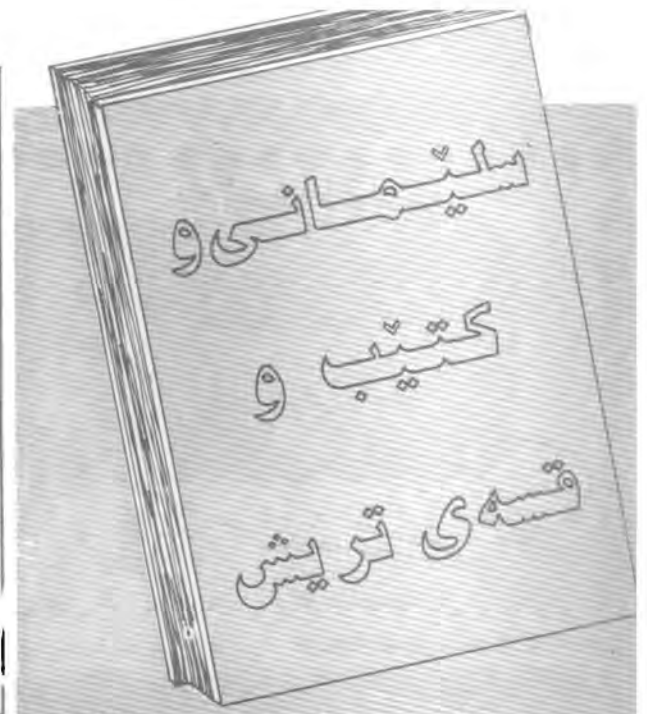 سلێمانی و
کتێب و
قسەی تریش